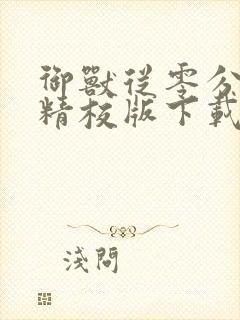 御獸從零分
精校版下載
淺問